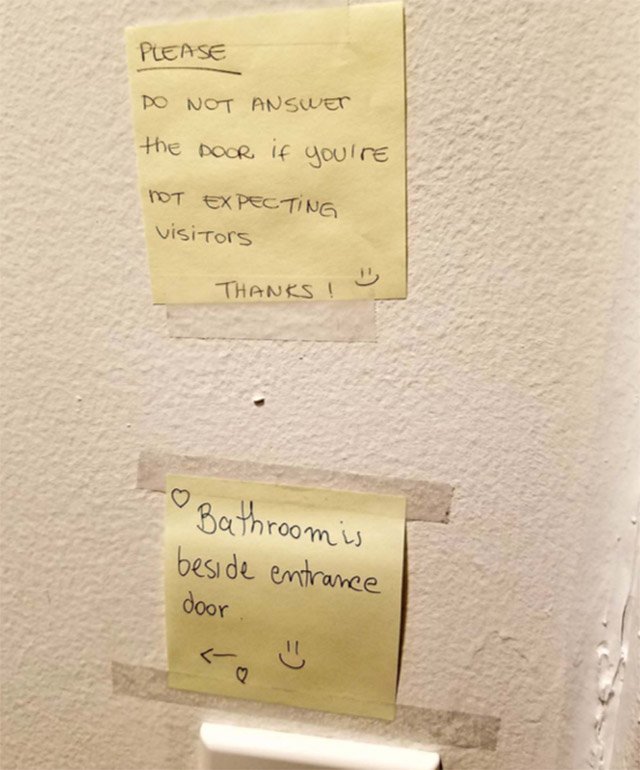 PLEASE
DO NOT ANSWER
the DOOR if you're
not EXPECTING
visitors
THANKS!
Bathroom is
beside entrance
door